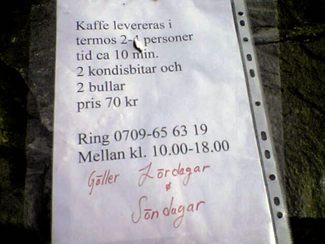 Kaffe levereras i
termos 2-4 personer
tid ca 10 min.
2 kondisbitar och
2 bullar
pris 70 kr
Ring 0709-65 63 19
Mellan kl. 10.00-18.00
Gäller Lördagar
ø
Söndagar